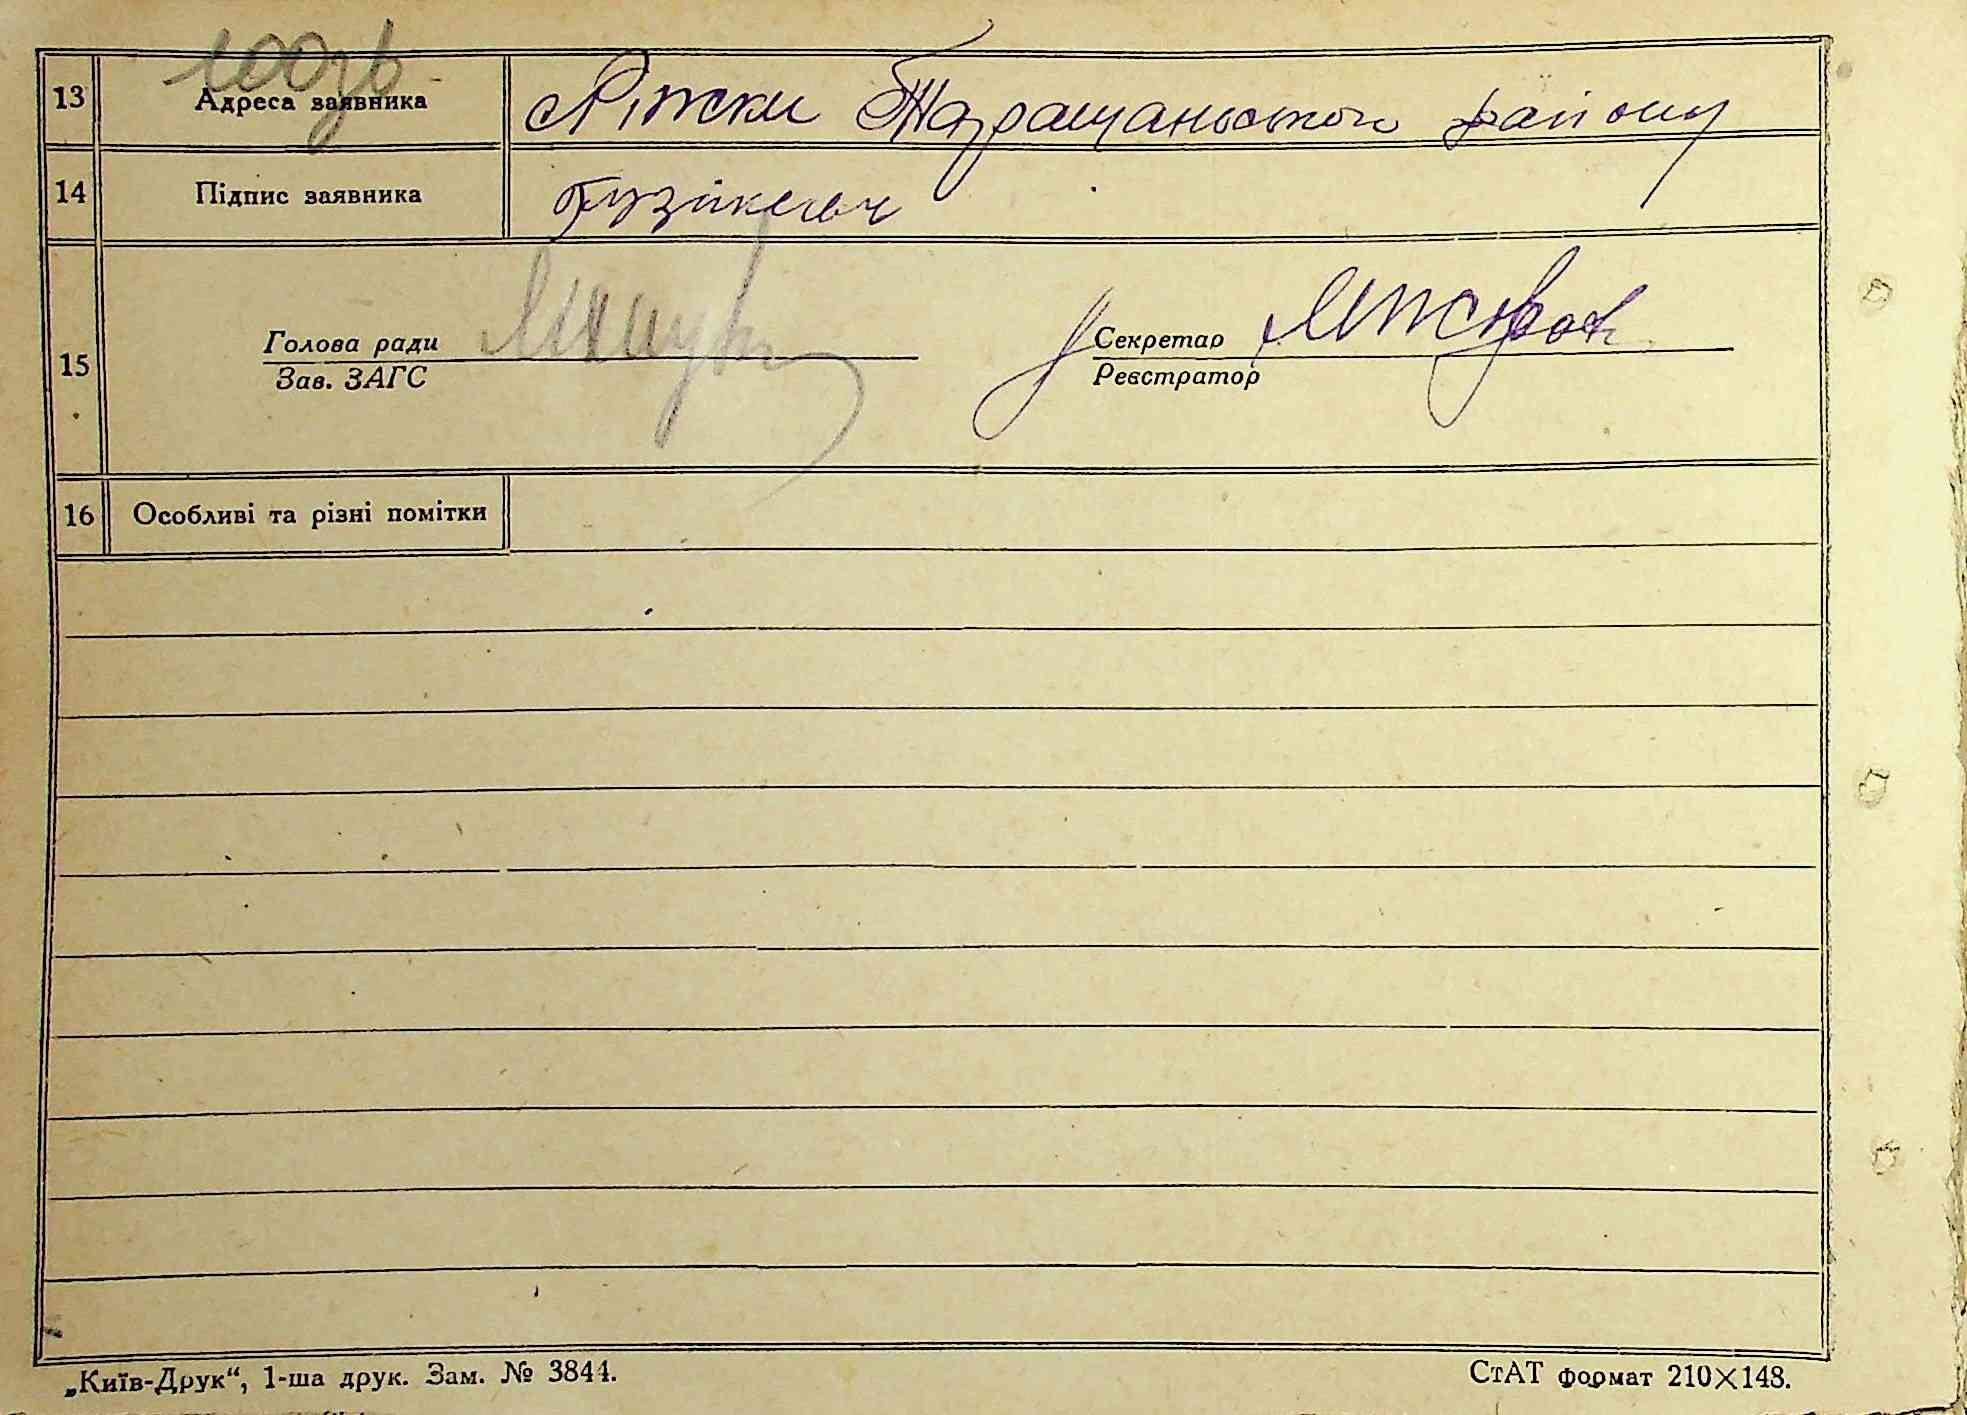 100зв
13 Адреса заявника Ліски Таращанського району
14 Підпис заявника
15 Голова ради Секретар
Зав. ЗАГС Реєстратор
16 Особливі та різні помітки
„Київ-Друк“, 1-ша друк. Зам. № 3844. СтАТ формат 210×148.